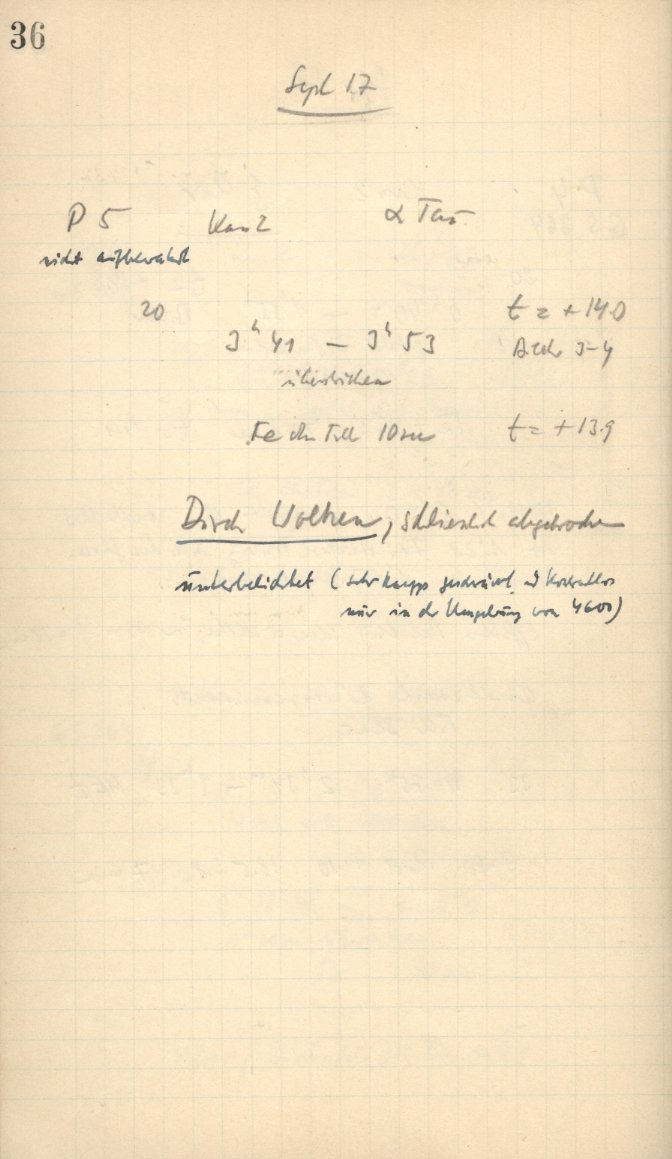 36
Sept 17
P 5 Kam 2 α Tau
nicht aufbewahrt
20 t = + 14.0
3ʰ 41 — 3ʰ 53
überstrichen
Fe 10 t = + 13.9
Durch Wolken, schliesslich abgebrochen
unterbelichtet (sehr knapp geschwärzt, kontrastlos
nur in der Umgebung von 4600)